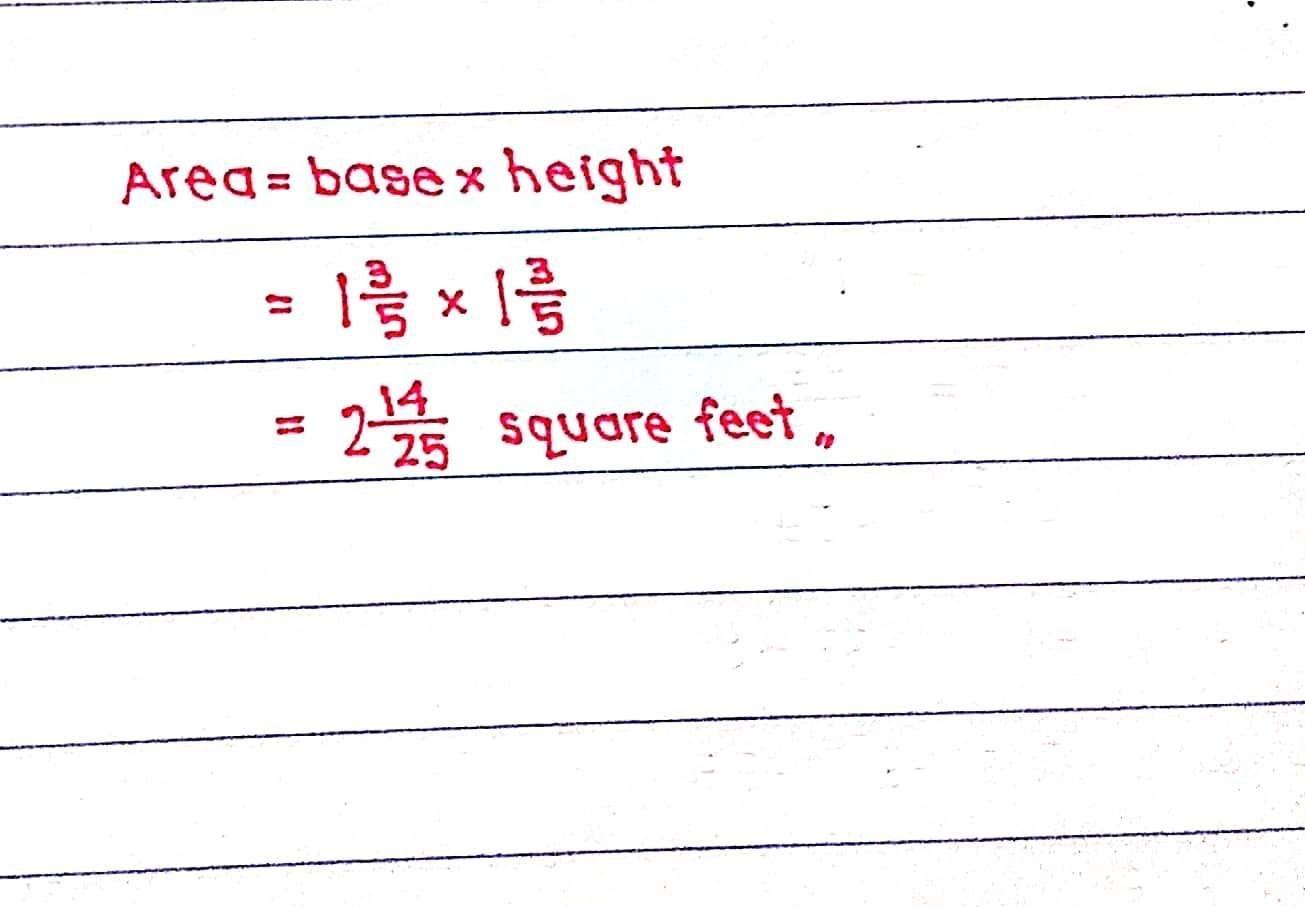 Area = base x height
= 1 3/5 x 1 3/5
= 2 14/25 square feet 〃